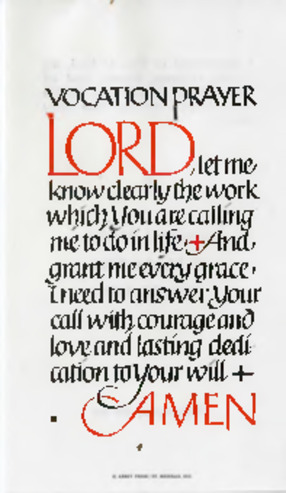 VOCATION PRAYER
LORD, let me
know clearly the work
which You are calling
me to do in life. + And,
grant me every grace
I need to answer Your
call with courage and
love and lasting dedi
cation to Your will +
AMEN